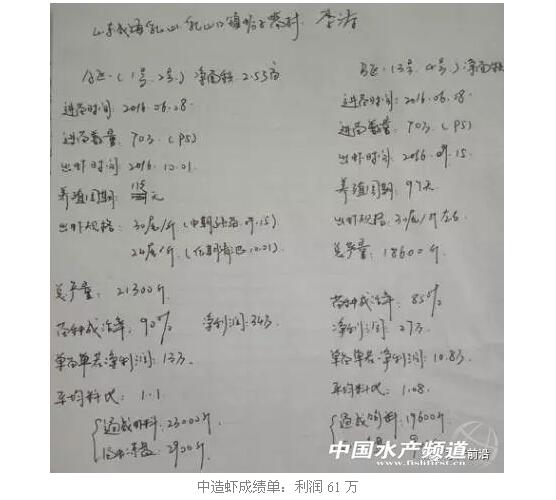 山东威海乳山 乳山口镇 村 李涛
A区.(1号.2号.)净面积 2.55亩
进苗时间: 2016.06.08
进苗数量: 70万.(P5)
出虾时间: 2016.10.01
养殖周期: 115天
出虾规格: 30尾/斤 (中期 .09.15)
24尾/斤 ( 10.01)
总产量: 21300斤.
苗种成活率: 90% 净利润: 34万.
单亩单茬净利润: 13万.
平均料比: 1.1
通威饲料: 23000斤
2900斤.
B区.(3号.4号.)净面积
进苗时间: 2016.06.08
进苗数量: 70万.(P5)
出虾时间: 2016.09.15.
养殖周期: 97天
出虾规格: 30尾/斤左右
总产量: 18600斤.
苗种成活率: 85%
净利润: 27万.
单亩单茬净利润: 10.8万
平均料比: 1.08.
通威饲料: 19600斤
中国水产频道
www.fishfirst.cn
前沿
中造虾成绩单：利润 61 万